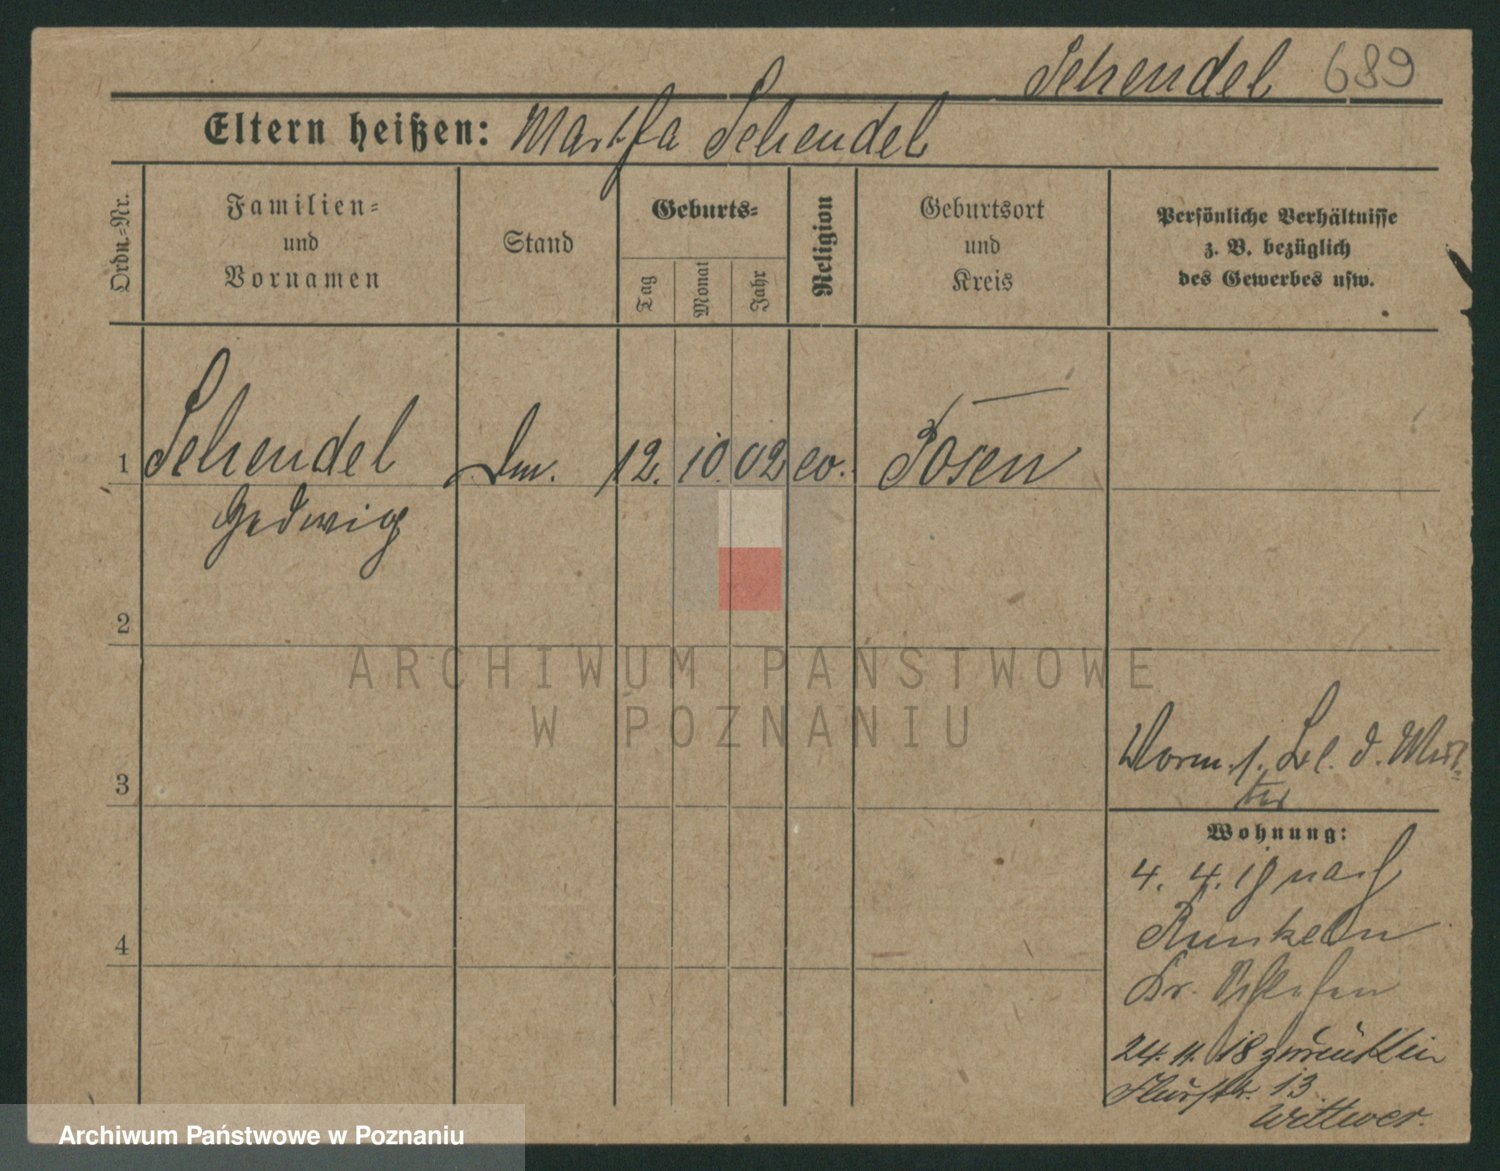 Schendel 689
Eltern heißen: Martha Schendel
Ordn.-Nr.
Familien-
und
Vornamen
Stand
Geburts-
Tag
Monat
Jahr
Religion
Geburtsort
und
Kreis
Persönliche Verhältnisse
z. B. bezüglich
des Gewerbes usw.
1 Schendel 12. 10. 02 ev. Posen
Hedwig
2
ARCHIWUM PAŃSTWOWE
W POZNANIU
3
Vorm. d. Mut-
ter
Wohnung:
4. 4. nach
4
Kr.
24. 11. 18 zurück
Flurstr. 13
Wittwer.
Archiwum Państwowe w Poznaniu